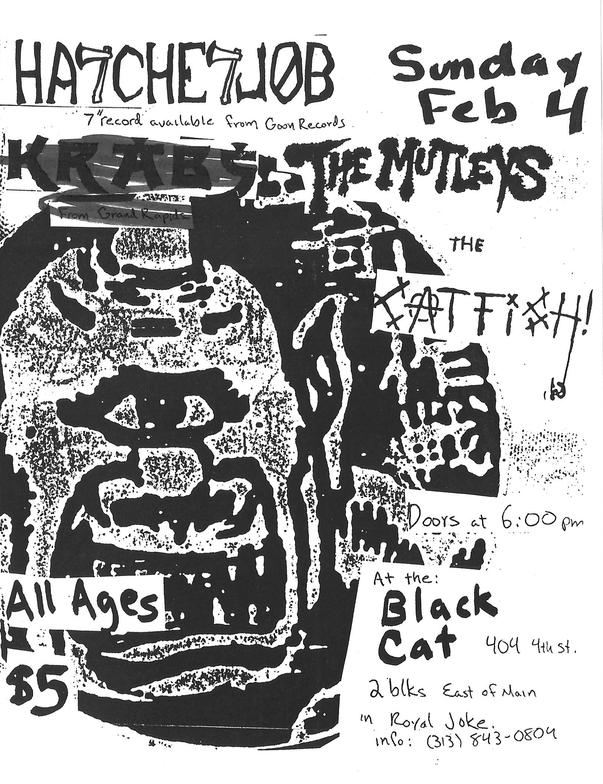 HATCHETJOB
7" record available from Goon Records
Sunday
Feb 4
KRABS
From Grand Rapids
THE MUTLEYS
THE
CATFISH!
Doors at 6:00 pm
All Ages
$5
At the:
Black
Cat 404 4th st.
2 blks East of Main
in Royal Joke.
info: (313) 843-0804